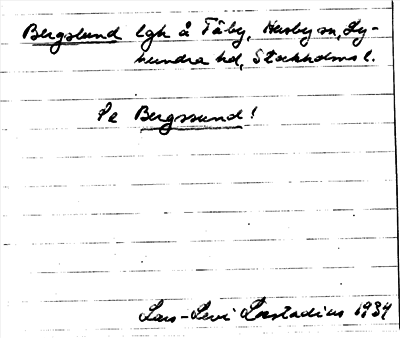 Bergslund lgh å Täby, Husby sn, Ly-
hundra hd, Stockholms l.
Se Bergssund!
Lars-Levi Læstadius 1934